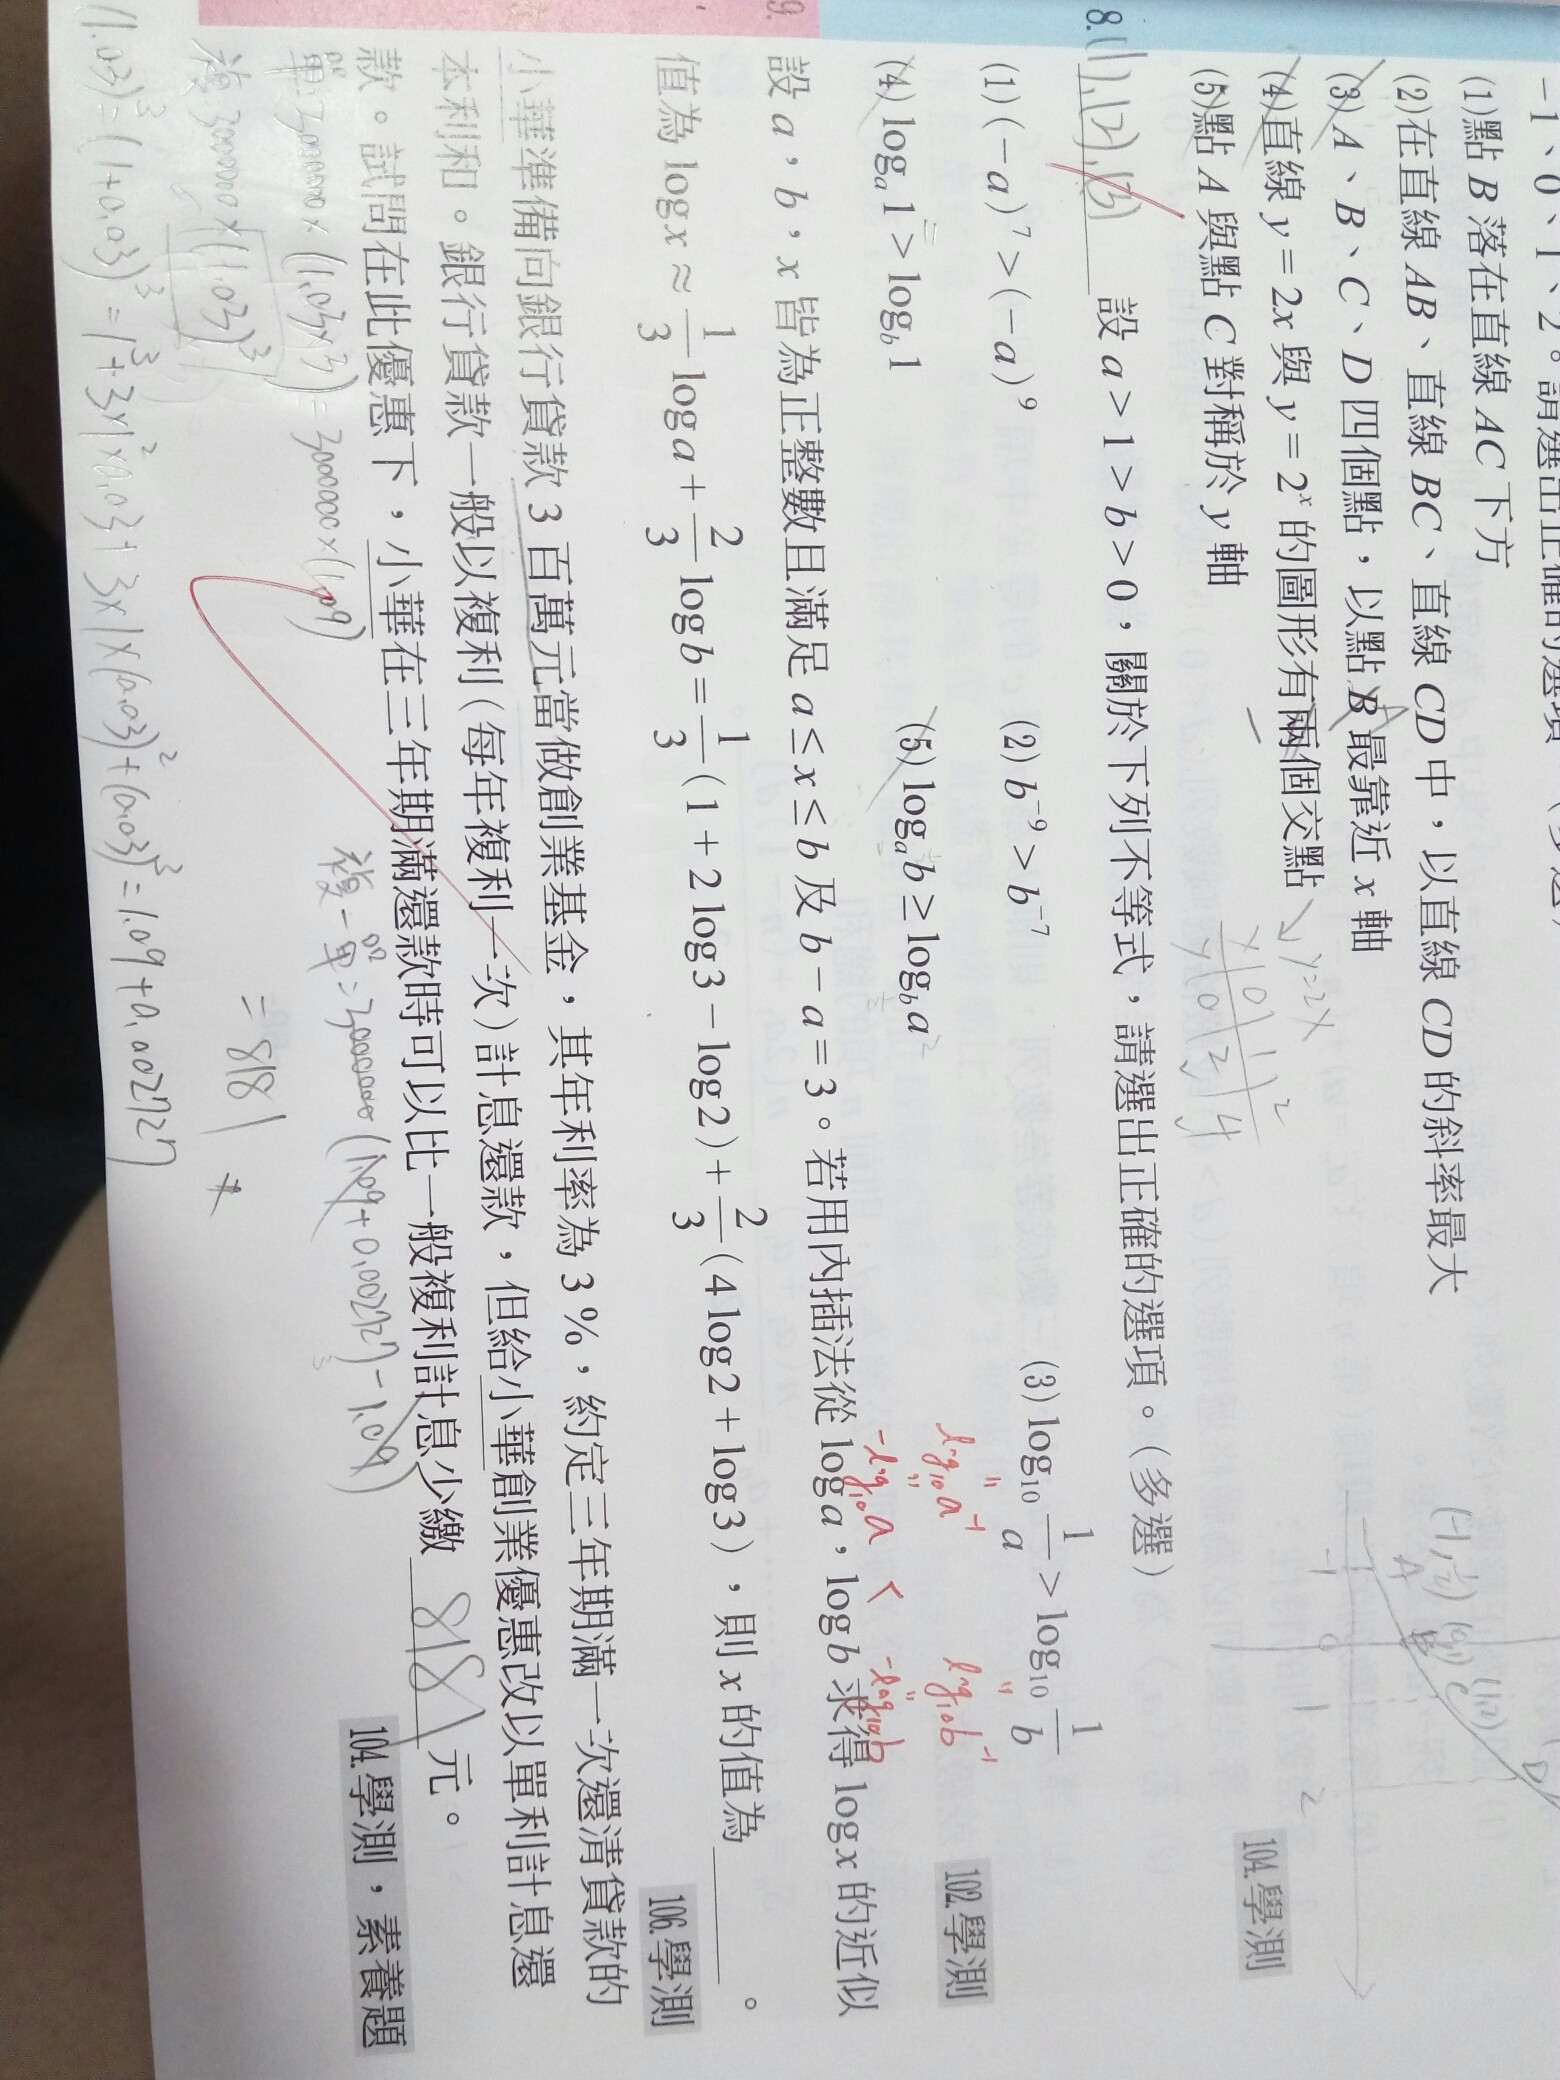 -1、0、1、2。請選出正確的選項。(多選)
(1)點 B 落在直線 AC 下方
(2)在直線 AB、直線 BC、直線 CD 中，以直線 CD 的斜率最大
(3) A、B、C、D 四個點，以點 B 最靠近 x 軸
A
(4)直線 y = 2x 與 y = 2ˣ 的圖形有兩個交點
→ y=2x
(5)點 A 與點 C 對稱於 y 軸
x 0 1 2
y 0 2 4
-1 0 1 2
104.學測
8. (1),(2),(3) 設 a > 1 > b > 0，關於下列不等式，請選出正確的選項。(多選)
(1) (-a)⁷ > (-a)⁹
(2) b⁻⁹ > b⁻⁷
(3) log₁₀ 1/a > log₁₀ 1/b
log₁₀a⁻¹ log₁₀b⁻¹
-log₁₀a < -log₁₀b
(4) logₐ1 > log_b 1
(5) logₐb ≥ log_b a
102.學測
9.
設 a，b，x 皆為正整數且滿足 a ≤ x ≤ b 及 b - a = 3。若用內插法從 log a，log b 求得 log x 的近似
值為 log x ≈ 1/3 log a + 2/3 log b = 1/3 (1 + 2 log 3 - log 2) + 2/3 (4 log 2 + log 3)，則 x 的值為 ______。
106.學測
小華準備向銀行貸款 3 百萬元當做創業基金，其年利率為 3 %，約定三年期滿一次還清貸款的
本利和。銀行貸款一般以複利(每年複利一次)計息還款，但給小華創業優惠改以單利計息還
款。試問在此優惠下，小華在三年期滿還款時可以比一般複利計息少繳 8181 元。
104.學測，素養題
單:3000000×(1.03×3)=3000000×(1.09)
複-單:3000000(1.09+0.002727-1.09)
複:3000000×(1.03)³
= 8181
(1.03)³=(1+0.03)³=1³+3×1²×0.03+3×1×(0.03)²+(0.03)³=1.09+0.002727